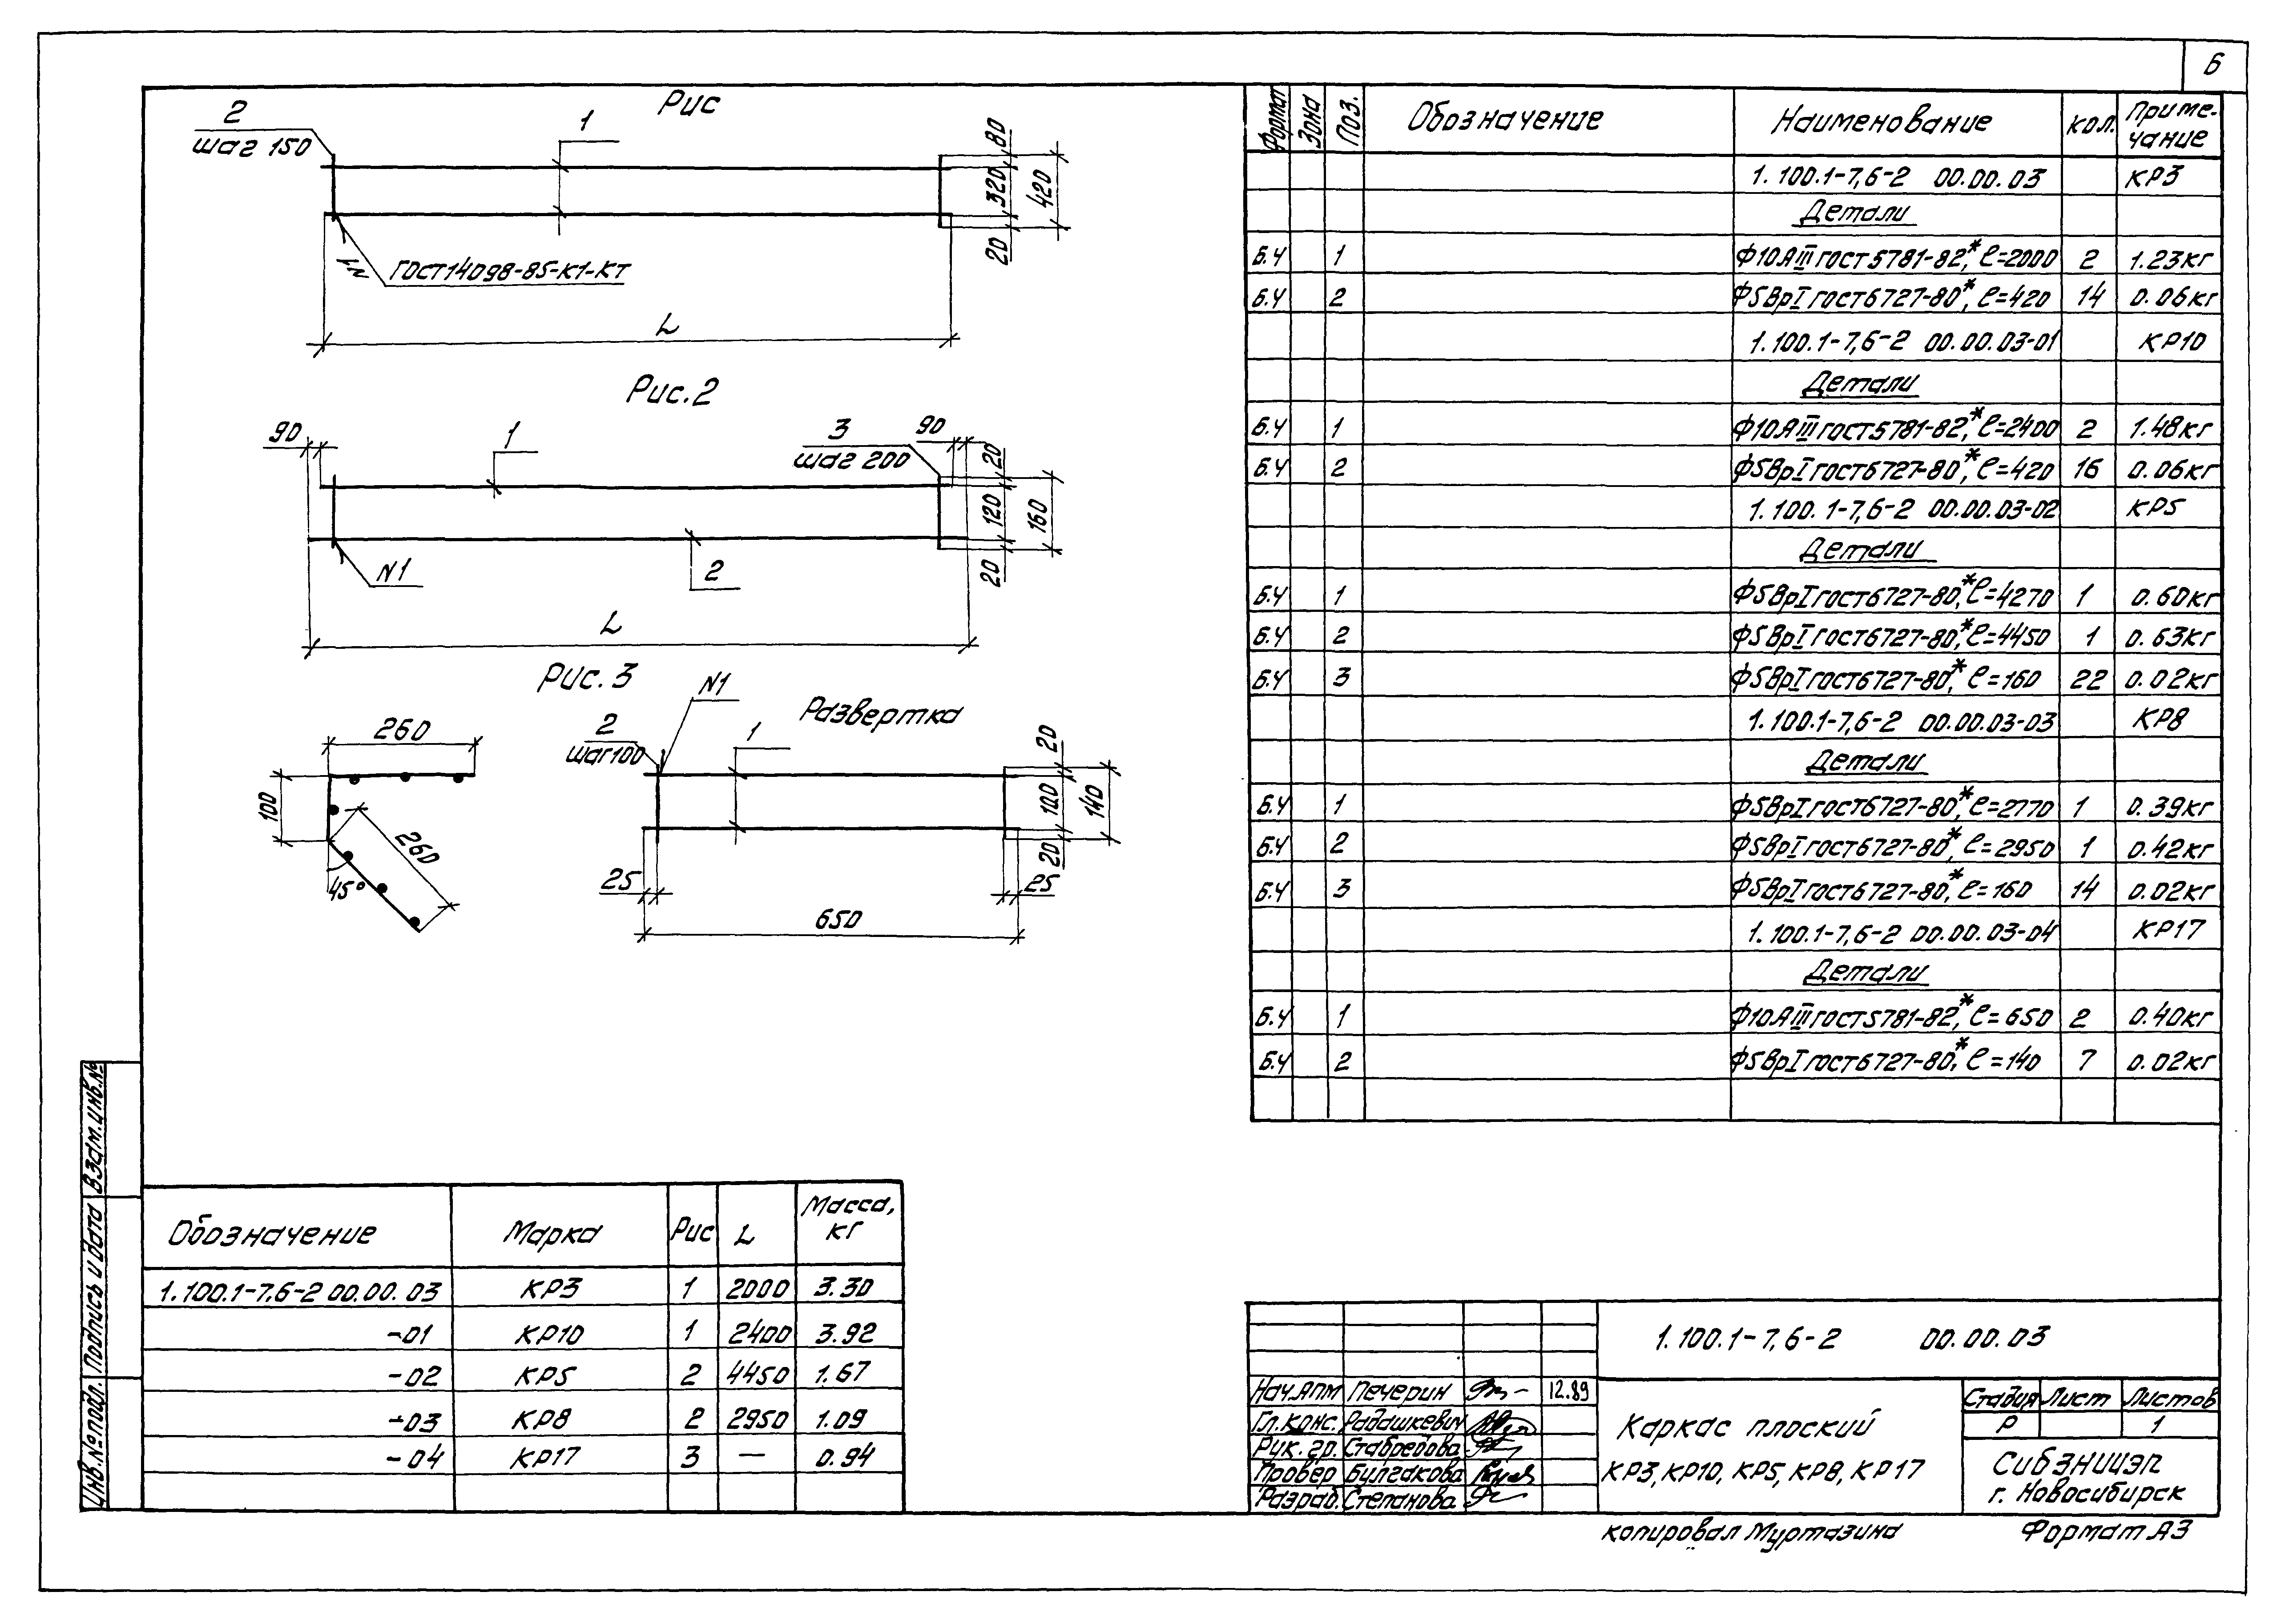 6
Рис
2
шаг 150
1
80
320
420
20
N1
ГОСТ14098-85-К1-Кт
L
Рис.2
90
1
3
шаг 200
90
20
120
160
20
N1
2
L
Рис. 3
Развертка
260
100
260
45°
2
шаг100
N1
1
20
100
140
20
25
25
650
Формат Зона Поз. Обозначение Наименование Кол. Приме-
чание
1.100.1-7,6-2 00.00.03 КР3
Детали
Б.Ч 1 Ф10АIII ГОСТ5781-82*, ℓ=2000 2 1.23кг
Б.Ч 2 Ф5ВрI ГОСТ6727-80*, ℓ=420 14 0.06кг
1.100.1-7,6-2 00.00.03-01 КР10
Детали
Б.Ч 1 Ф10АIII ГОСТ5781-82*, ℓ=2400 2 1.48кг
Б.Ч 2 Ф5ВрI ГОСТ6727-80*, ℓ=420 16 0.06кг
1.100.1-7,6-2 00.00.03-02 КР5
Детали
Б.Ч 1 Ф5ВрI ГОСТ6727-80*, ℓ=4270 1 0.60кг
Б.Ч 2 Ф5ВрI ГОСТ6727-80*, ℓ=4450 1 0.63кг
Б.Ч 3 Ф5ВрI ГОСТ6727-80*, ℓ=160 22 0.02кг
1.100.1-7,6-2 00.00.03-03 КР8
Детали
Б.Ч 1 Ф5ВрI ГОСТ6727-80*, ℓ=2770 1 0.39кг
Б.Ч 2 Ф5ВрI ГОСТ6727-80*, ℓ=2950 1 0.42кг
Б.Ч 3 Ф5ВрI ГОСТ6727-80*, ℓ=160 14 0.02кг
1.100.1-7,6-2 00.00.03-04 КР17
Детали
Б.Ч 1 Ф10АIII ГОСТ5781-82*, ℓ=650 2 0.40кг
Б.Ч 2 Ф5ВрI ГОСТ6727-80*, ℓ=140 7 0.02кг
Обозначение Марка Рис L Масса,
кг
1.100.1-7.6-2 00.00.03 КР3 1 2000 3.30
-01 КР10 1 2400 3.92
-02 КР5 2 4450 1.67
-03 КР8 2 2950 1.09
-04 КР17 3 — 0.94
Инв.№ подл. Подпись и дата Взам.инв.№
1.100.1-7,6-2 00.00.03
Нач.АПМ Печерин 12.89
Гл.конс. Радашкевич
Рук. гр. Ставредова
Провер Булгакова
Разраб. Степанова
Каркас плоский
КР3, КР10, КР5, КР8, КР17
Стадия Лист Листов
Р 1
СибЗНИИЭП
г. Новосибирск
копировал Муртазина
Формат А3